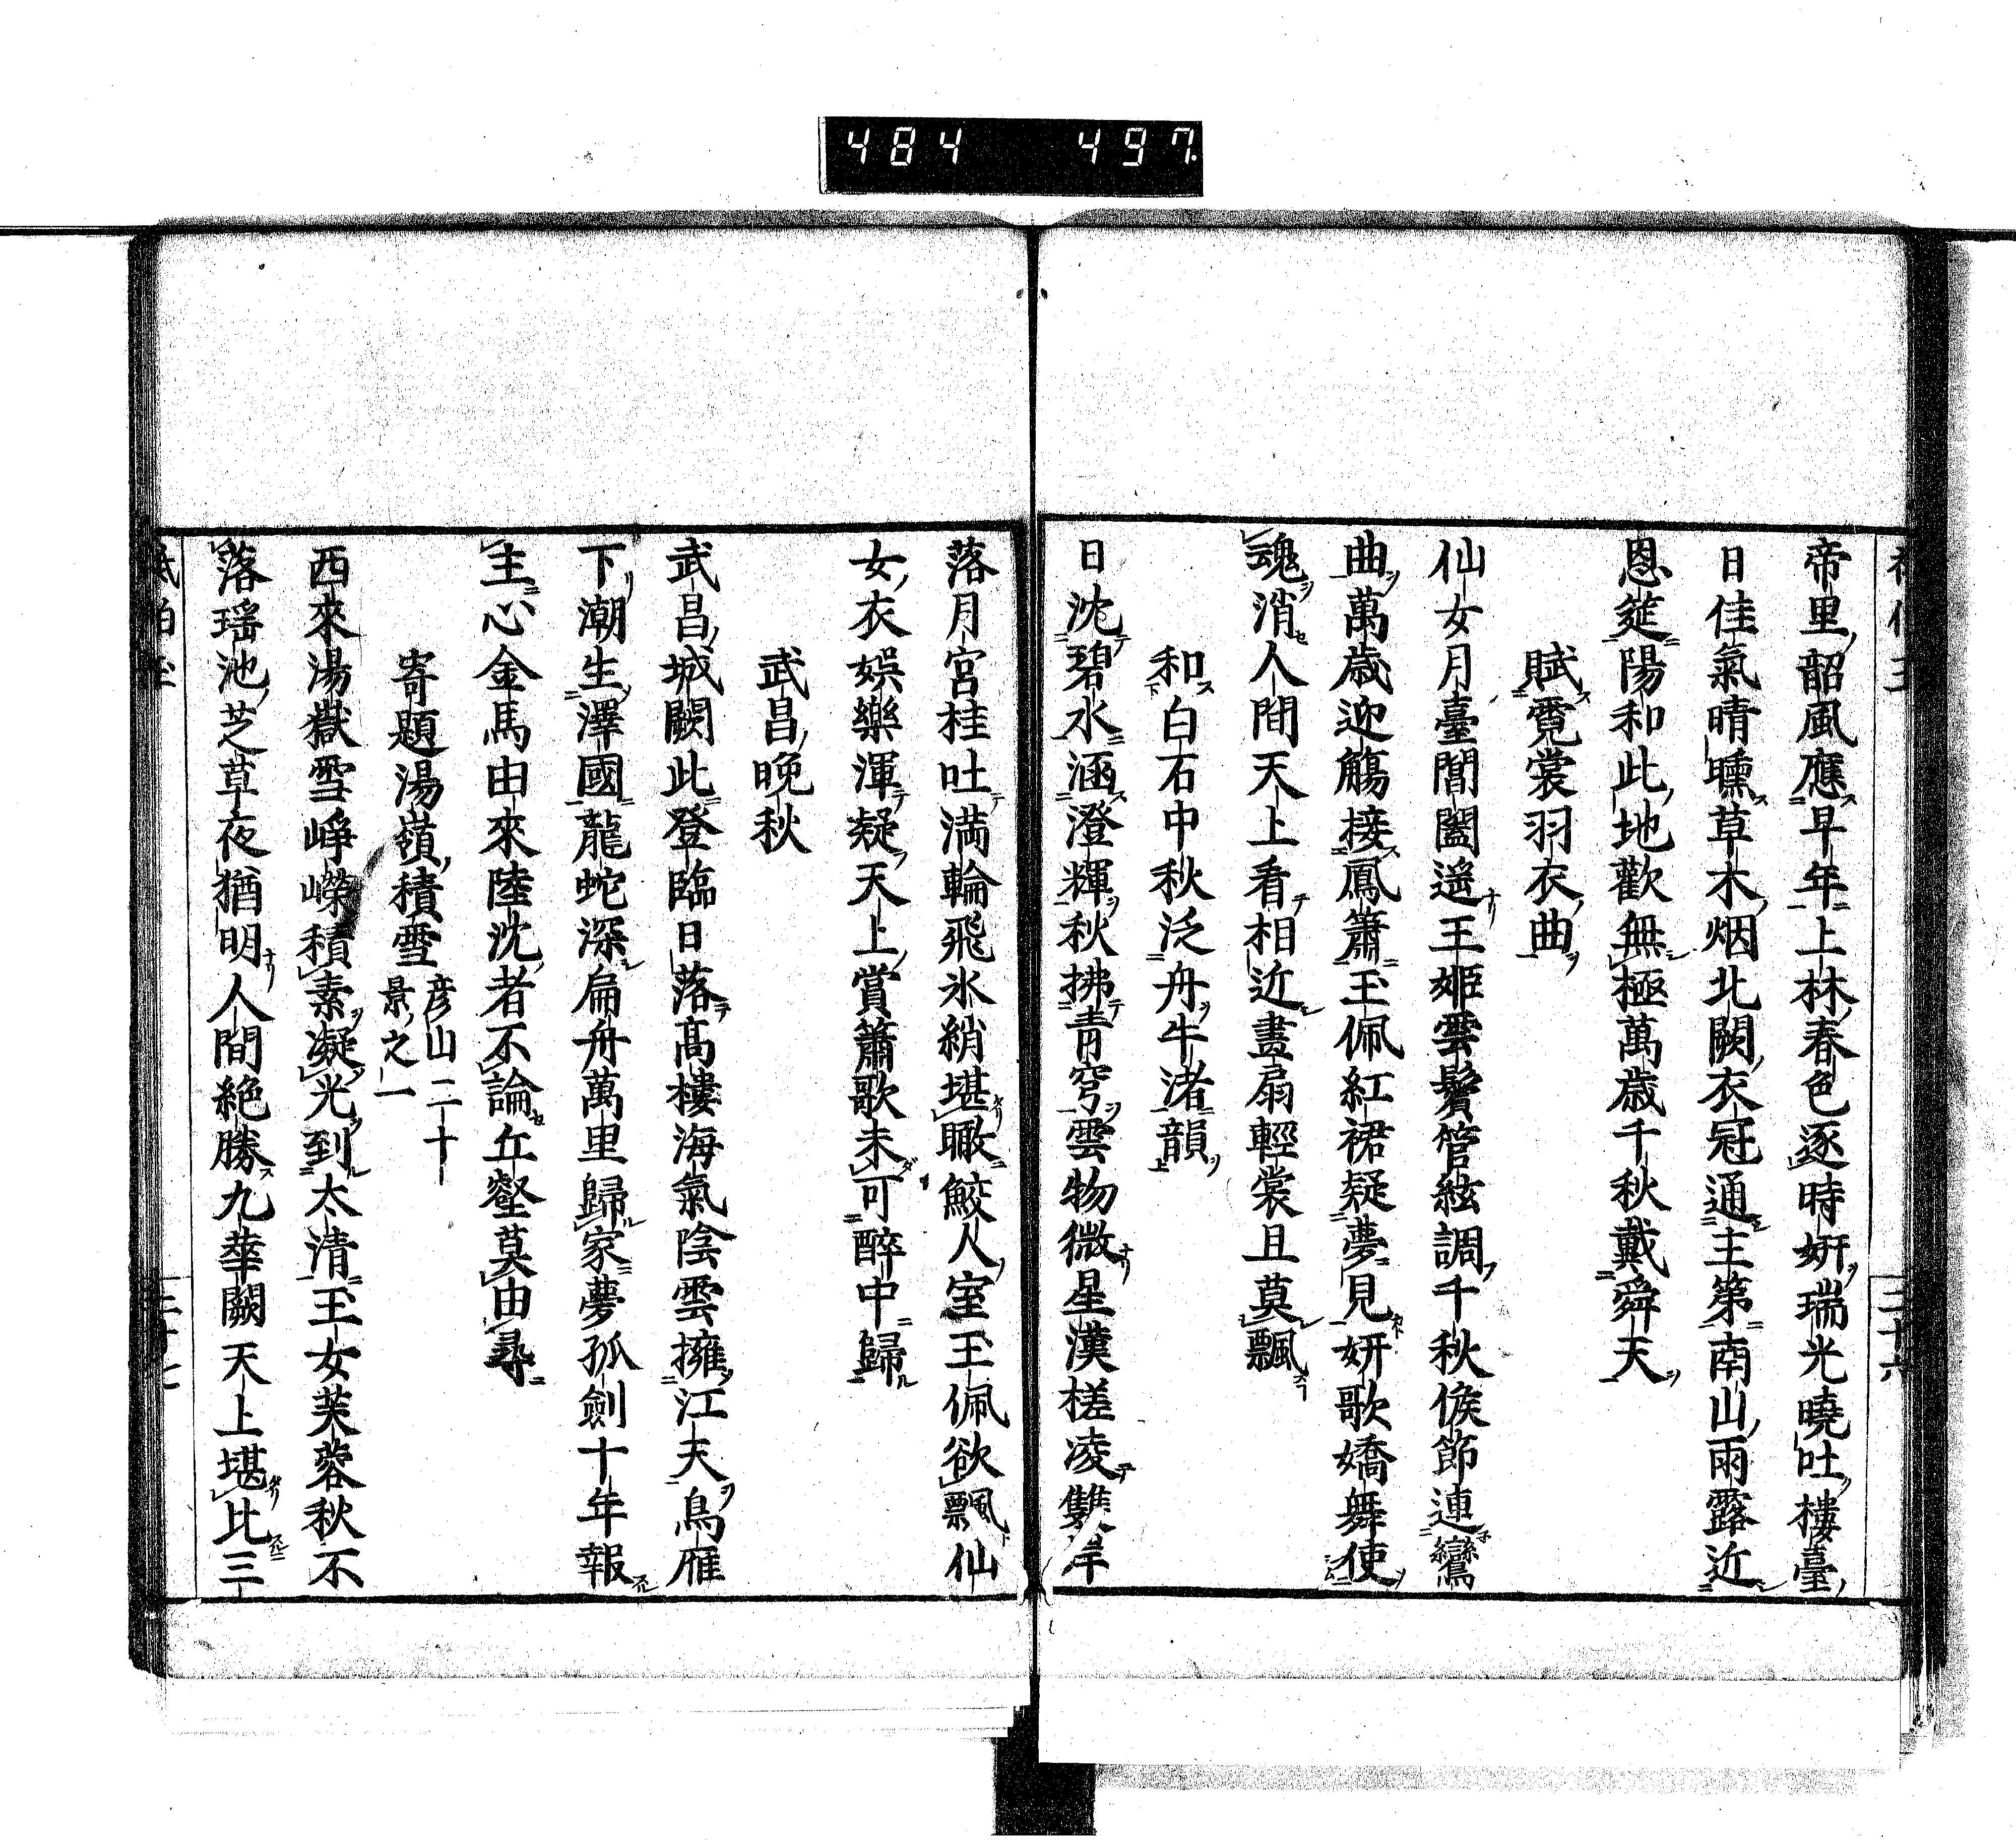 484 497
帝里韶風應早年上林春色逐時妍瑞光曉吐樓臺
日佳氣晴曛草木烟北闕衣冠通主第南山雨露近
恩筵陽和此地歡無極萬歳千秋戴舜天
賦霓裳羽衣曲
仙女月臺閶闔遥王姬雲鬢管絃調千秋候節連鸞
曲萬歳迎觴接鳳簫玉佩紅裙疑夢見妍歌嬌舞使
魂消人間天上看相近畫扇輕裳且莫飄
和白石中秋泛舟牛渚韻
日沈碧水涵澄輝秋拂青穹雲物微星漢槎凌雙岸
落月宮桂吐満輪飛氷綃堪瞰鮫人室玉佩欲飄仙
女衣娯樂渾疑天上賞簫歌未可醉中歸
武昌晩秋
武昌城闕此登臨日落高樓海氣陰雲擁江天鳥雁
下潮生澤國龍蛇深扁舟萬里歸家夢孤劍十年報
主心金馬由來陸沈者不論丘壑莫由尋
寄題湯嶽積雪 彦山二十
景之一
西來湯嶽雪崢嶸積素凝光到太清玉女芙蓉秋不
落瑶池芝草夜猶明人間絶勝九華闕天上堪比三